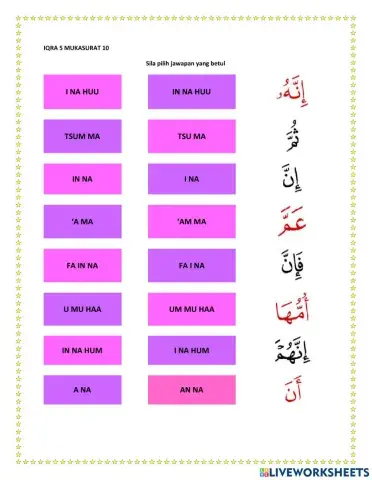 IQRA 5 MUKASURAT 10
Sila pilih jawapan yang betul
I NA HUU IN NA HUU إِنَّهُۥ
TSUM MA TSU MA ثُمَّ
IN NA I NA إِنَّ
'A MA 'AM MA عَمَّ
FA IN NA FA I NA فَإِنَّ
U MU HAA UM MU HAA أُمُّهَا
IN NA HUM I NA HUM إِنَّهُمْ
A NA AN NA أَنَ
LIVEWORKSHEETS